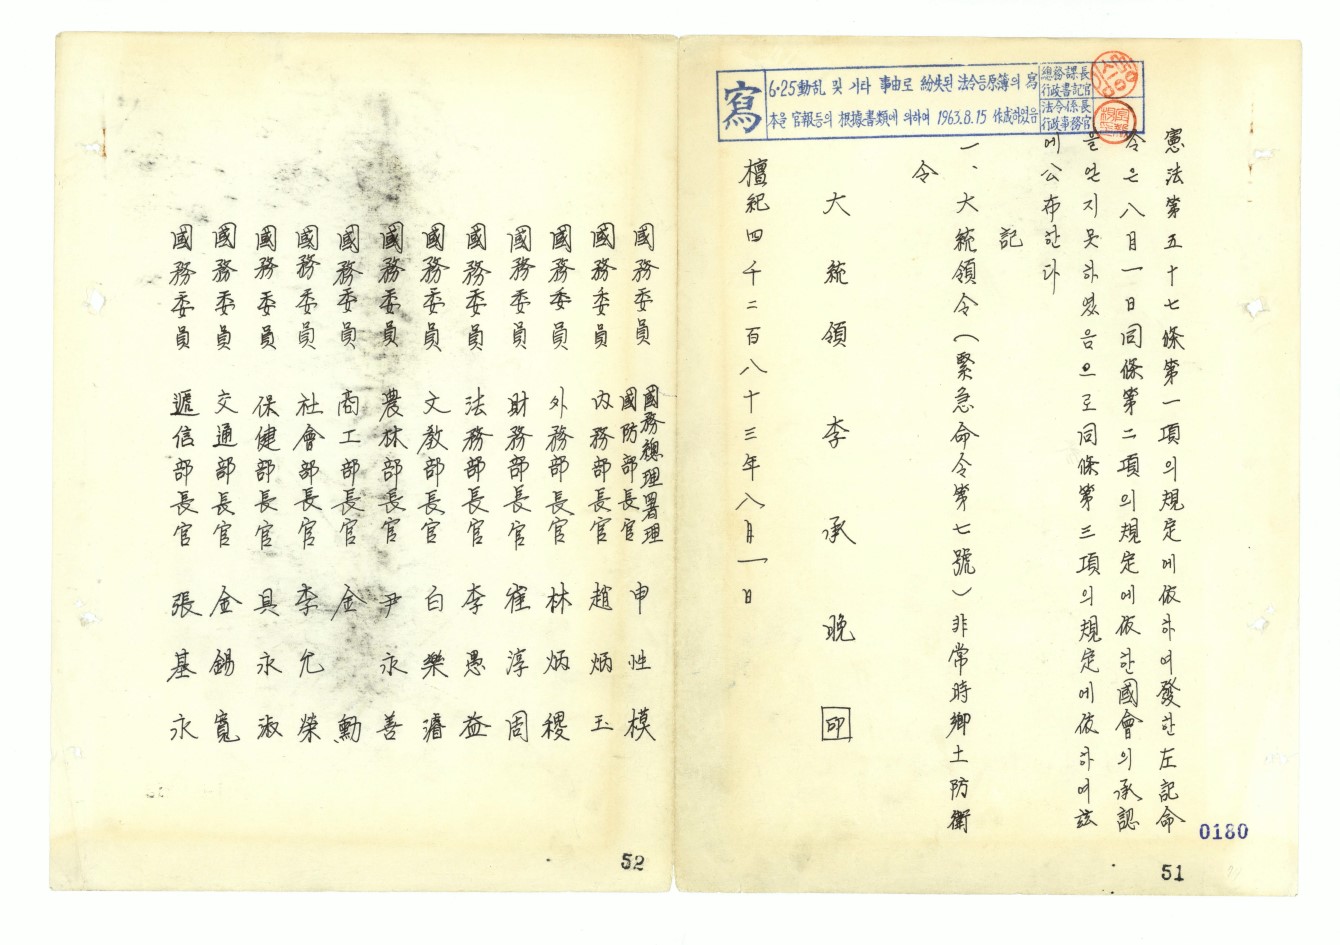 寫
6·25動乱 및 기타 事由로 紛失된 法令등原簿의 寫
本을 官報등의 根據書類에 의하여 1963.8.15 作成하였음
總務課長
行政書記官
法令係長
行政事務官
憲法第五十七條第一項의規定에依하여發한左記命
令은八月一日同條第二項의規定에依한國會의承認
을얻지못하였음으로同條第三項의規定에依하여玆
에公布한다
記
一、大統領令(緊急命令第七號)非常時鄕土防衛
令
大統領 李承晩 印
檀紀四千二百八十三年八月一日
0180
51
國務總理署理
國務委員 國防部長官 申性模
國務委員 內務部長官 趙炳玉
國務委員 外務部長官 林炳稷
國務委員 財務部長官 崔淳周
國務委員 法務部長官 李愚益
國務委員 文敎部長官 白樂濬
國務委員 農林部長官 尹永善
國務委員 商工部長官 金勳
國務委員 社會部長官 李允榮
國務委員 保健部長官 具永淑
國務委員 交通部長官 金錫寬
國務委員 遞信部長官 張基永
52